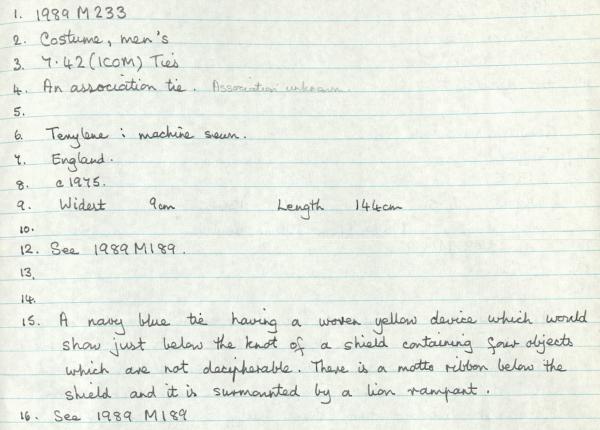 1. 1989 M 233
2. Costume, men's
3. 7.42 (ICOM) Ties
4. An association tie. Association unknown.
5.
6. Terylene : machine sewn.
7. England.
8. c 1975.
9. Widest 9cm Length 144cm
10.
12. See 1989 M189.
13.
14.
15. A navy blue tie having a woven yellow device which would
show just below the knot of a shield containing four objects
which are not decipherable. There is a motto ribbon below the
shield and it is surmounted by a lion rampant.
16. See 1989 M189